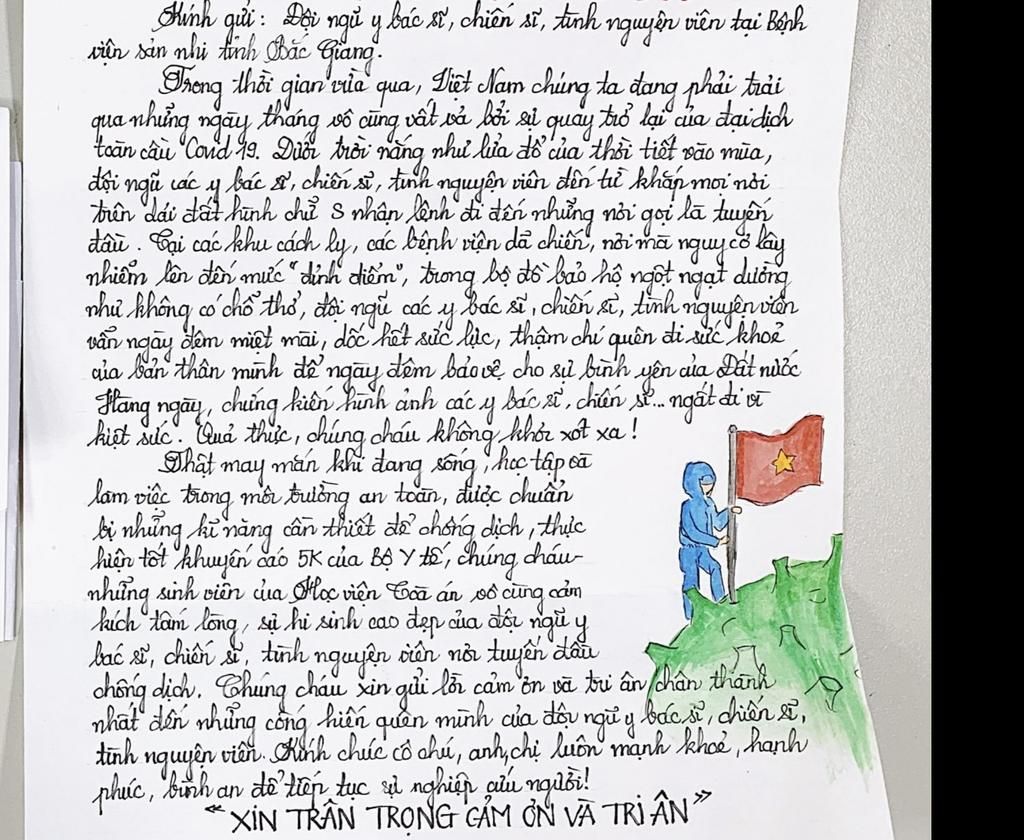 Kính gửi: Đội ngũ y bác sĩ, chiến sĩ, tình nguyện viên tại Bệnh
viện sản nhi tỉnh Bắc Giang.
Trong thời gian vừa qua, Việt Nam chúng ta đang phải trải
qua những ngày tháng vô cùng vất vả bởi sự quay trở lại của đại dịch
toàn cầu Covid 19. Dưới trời nắng như lửa đổ của thời tiết vào mùa,
đội ngũ các y bác sĩ, chiến sĩ, tình nguyện viên đến từ khắp mọi nơi
trên dải đất hình chữ S nhận lệnh đi đến những nơi gọi là tuyến
đầu. Tại các khu cách ly, các bệnh viện dã chiến, nơi mà nguy cơ lây
nhiễm lên đến mức "đỉnh điểm", trong bộ đồ bảo hộ ngột ngạt dường
như không có chỗ thở, đội ngũ các y bác sĩ, chiến sĩ, tình nguyện viên
vẫn ngày đêm miệt mài, dốc hết sức lực, thậm chí quên đi sức khoẻ
của bản thân mình để ngày đêm bảo vệ cho sự bình yên của Đất nước
Hàng ngày, chứng kiến hình ảnh các y bác sĩ, chiến sĩ... ngất đi vì
kiệt sức. Quả thực, chúng cháu không khỏi xót xa!
Thật may mắn khi đang sống, học tập và
làm việc trong môi trường an toàn, được chuẩn
bị những kĩ năng cần thiết để chống dịch, thực
hiện tốt khuyến cáo 5K của Bộ Y tế, chúng cháu-
những sinh viên của Học viện Toà án vô cùng cảm
kích tấm lòng, sự hi sinh cao đẹp của đội ngũ y
bác sĩ, chiến sĩ, tình nguyện viên nơi tuyến đầu
chống dịch. Chúng cháu xin gửi lời cảm ơn và tri ân chân thành
nhất đến những cống hiến quên mình của đội ngũ y bác sĩ, chiến sĩ,
tình nguyện viên. Kính chúc cô chú, anh, chị luôn mạnh khoẻ, hạnh
phúc, bình an để tiếp tục sự nghiệp cứu người!
"XIN TRÂN TRỌNG CẢM ƠN VÀ TRI ÂN"